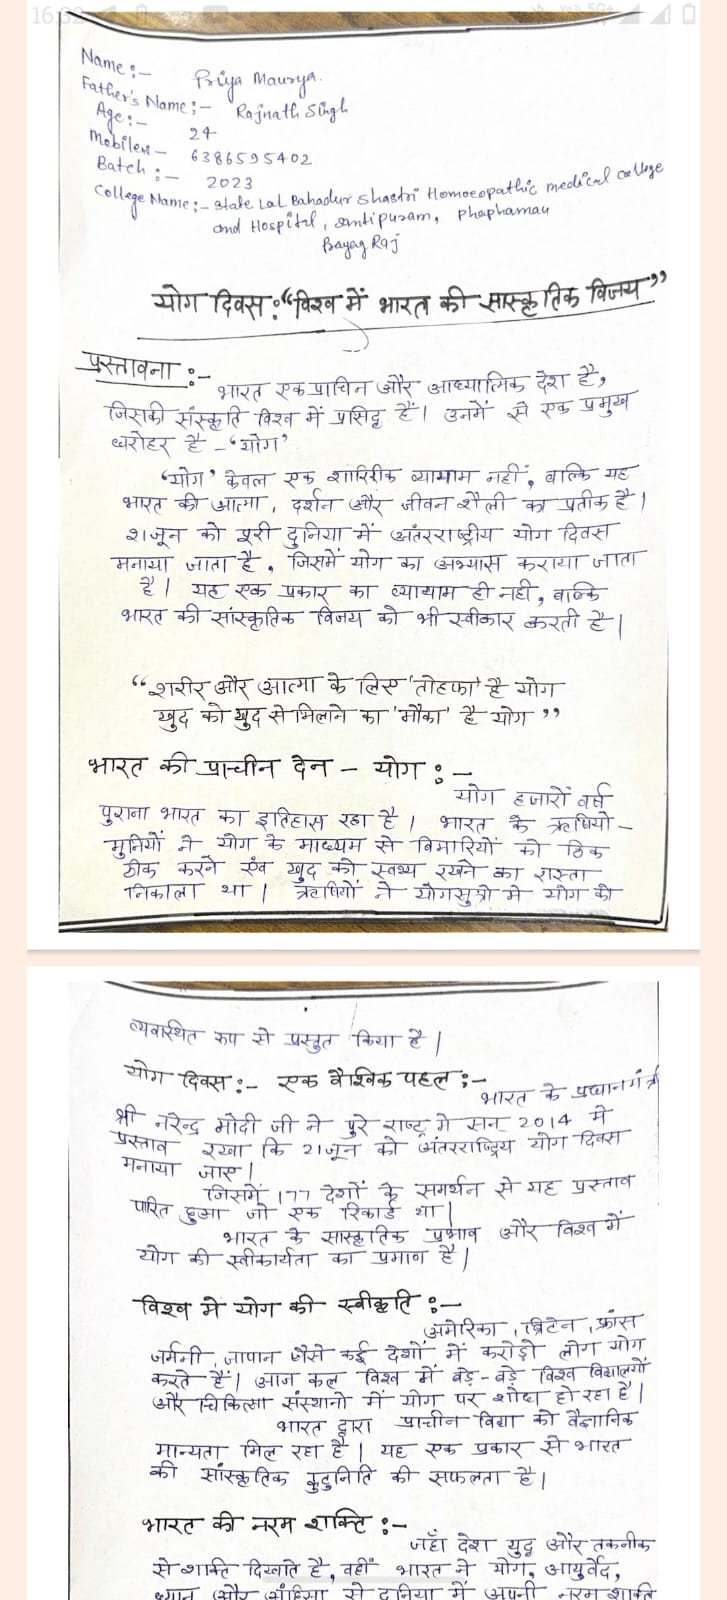 16:32
Name:- Priya Maurya.
Father's Name:- Rajnath Singh
Age:- 24
Mobile no- 6386595402
Batch:- 2023
College Name:- State Lal Bahadur Shastri Homoeopathic medical college
and Hospital, Santipuram, Phaphamau
Prayag Raj
योग दिवस: "विश्व में भारत की सास्कृतिक विजय"
प्रस्तावना :-
भारत एक प्राचिन और आध्यात्मिक देश है,
जिसकी संस्कृति विश्व में प्रसिद्ध हैं। उनमें से एक प्रमुख
धरोहर है -'योग'
'योग' केवल एक शारिरीक व्यायाम नहीं, बाल्कि यह
भारत की आत्मा, दर्शन और जीवन शैली का प्रतीक है।
21 जून को पूरी दुनिया में अंतरराष्ट्रीय योग दिवस
मनाया जाता है, जिसमें योग का अभ्यास कराया जाता
है। यह एक प्रकार का व्यायाम ही नही, बाल्कि
भारत की सांस्कृतिक विजय को भी स्वीकार करती है।
"शरीर और आत्मा के लिए 'तोहफा' है योग
खुद को खुद से मिलाने का 'मौका' है योग"
भारत की प्राचीन देन - योग :-
योग हजारों वर्ष
पुराना भारत का इतिहास रहा है। भारत के ऋषियो-
मुनियों ने योग के माध्यम से बिमारियों को ठिक
ठीक करने एंव खुद को स्वथ्य रखने का रास्ता
निकाला था। ऋषियों ने योगसुत्रो मे योग की
व्यवास्थित रूप से प्रस्तुत किया है।
योग दिवस:- एक वैश्विक पहल:-
भारत के प्रधानमंत्री
श्री नरेन्द्र मोदी जी ने पुरे राष्ट्र मे सन् 2014 मे
प्रस्ताव रखा कि 21 जून को अंतरराष्ट्रिय योग दिवस
मनाया जाए।
जिसमें 177 देशों के समर्थन से यह प्रस्ताव
पारित हुआ जो एक रिकार्ड था।
भारत के सास्कृतिक प्रभाव और विश्व में
योग की स्वीकार्यता का प्रमाण है।
विश्व मे योग की स्वीकृति :-
अमेरिका, ब्रिटेन, फ्रांस
जर्मनी, जापान जैसे कई देशों में करोड़ो लोग योग
करते हैं। आज कल विश्व में बड़े-बड़े विश्व विद्यालयों
और चिकित्सा संस्थानो में योग पर शोध हो रहा है।
भारत द्वारा प्राचीन विद्या को वैज्ञानिक
मान्यता मिल रहा है। यह एक प्रकार से भारत
की सांस्कृतिक कुटुनिति की सफलता है।
भारत की नरम शाक्ति :-
जहाँ देश युद्व और तकनीक
से शक्ति दिखाते है, वहीं भारत ने योग, आयुर्वेद,
ध्यान और अंहिसा से दुनिया में अपनी नरम शाक्ति